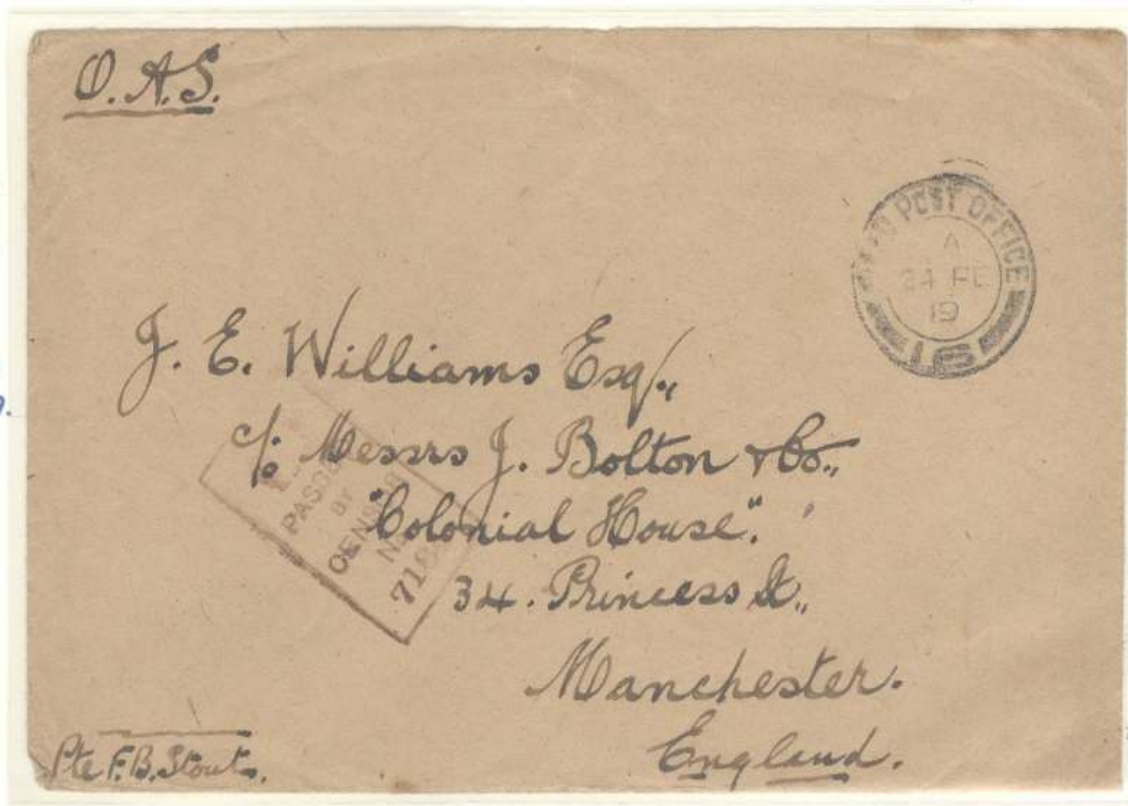 O.A.S.
POST OFFICE
A
24 FE
19
16
J. E. Williams Esq.,
c/o Messrs J. Bolton & Co.,
"Colonial House".
34. Princess St.,
Manchester.
England.
PASSED
BY
CENSOR
No
Pte F.B. Stout.